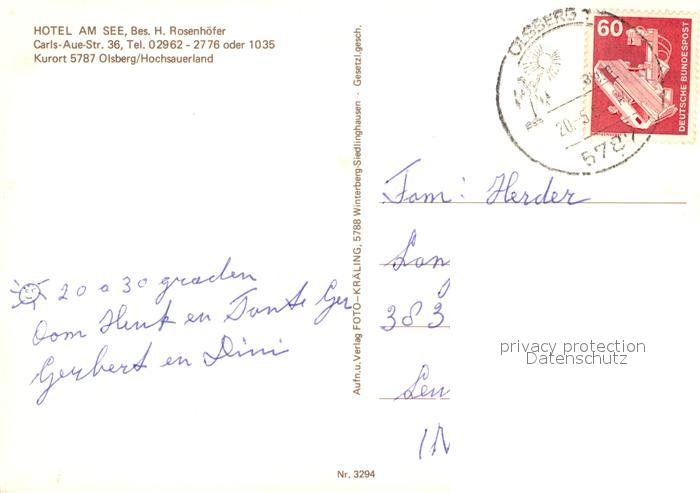 HOTEL AM SEE, Bes. H. Rosenhöfer
Carls-Aue-Str. 36, Tel. 02962 - 2776 oder 1035
Kurort 5787 Olsberg/Hochsauerland
OLSBERG 1
20.-5.
5787
60
DEUTSCHE BUNDESPOST
Aufn. u. Verlag FOTO-KRÄLING, 5788 Winterberg-Siedlinghausen · Gesetzl. gesch.
Fam: Herder
Lan
383
Leu
(N
20 a 30 graden
Oom Henk en Tante Ger
Gerbert en Dini
privacy protection
Datenschutz
Nr. 3294